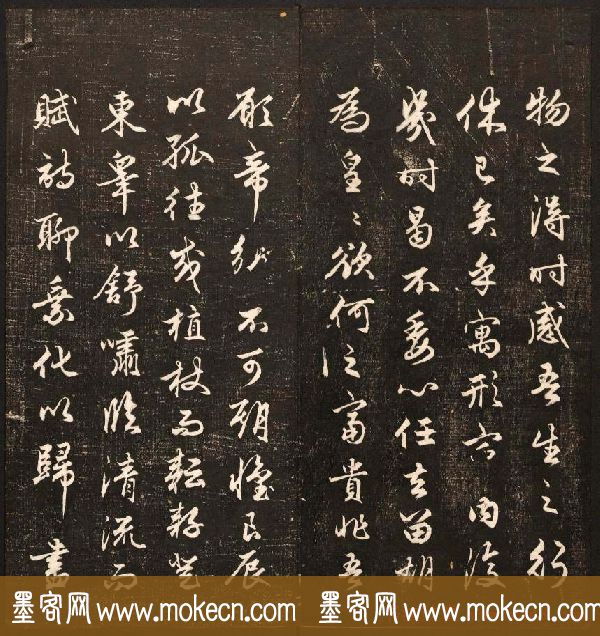 物之得時感吾生之行
休已矣乎寓形宇内復
幾時曷不委心任去留胡
為皇〻欲何之富貴非吾
願帝鄉不可期懷良辰
以孤往或植杖而耘耔登
東皋以舒嘯臨清流而
賦詩聊乘化以歸盡
墨客网 www.mokecn.com 墨客网 www.mokecn.com